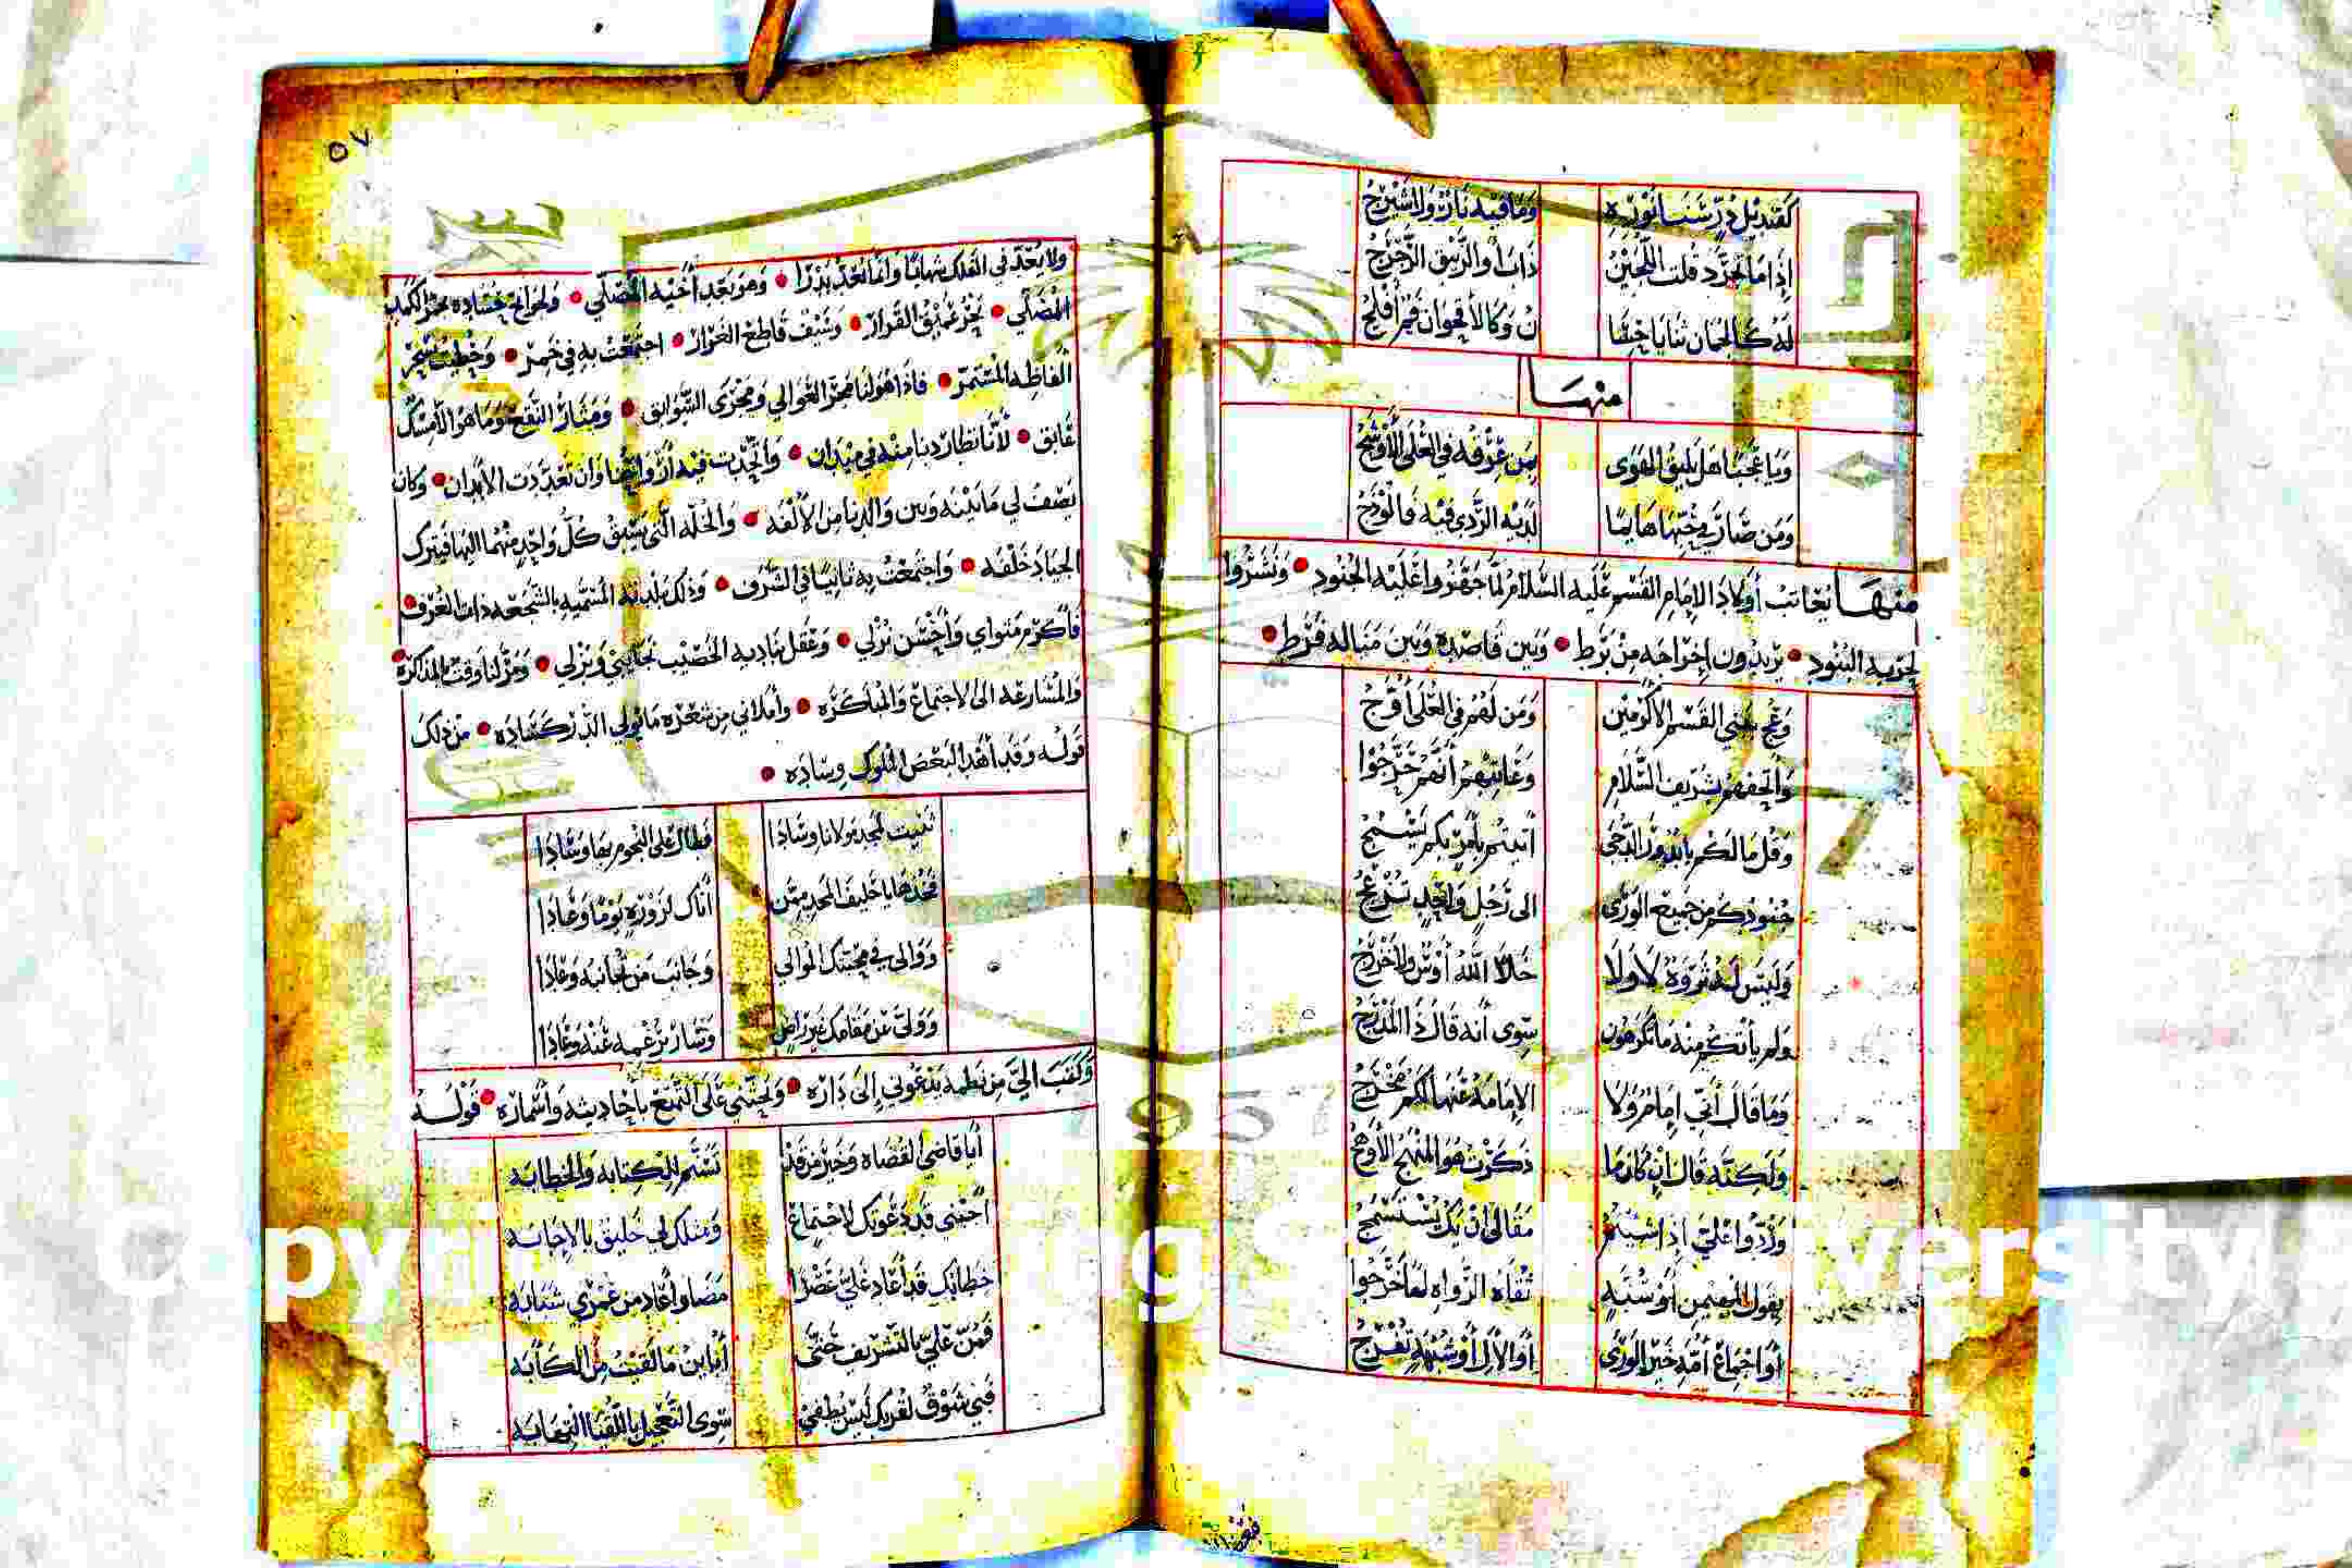 كقنديل در سنا نوره وما فيه نار ولا مسرج
إذا ما تجرد قلت اللجين ذاب أو الزيبق الرجرج
له كالجمان ثنايا ن وكالأقحوان فم أفلج
منها
ويا عجبا هل يليق الهوى بمن عرفه في العلى الأوشج
ومن صار في حبها هايما لديه الردى فيه فالوذج
منها يعاتب أولاد الإمام القسم عليه السلام لما جهزوا عليه الجنود • ونشروا
لحربه البنود • يريدون إخراجه من برط • وبين قاصده وبين مناله فرط •
وعج ببني القسم الأكرمين ومن لهم في العلى أوج
واتحفهم بشريف السلام وعاتبهم أنهم حرجوا
وقل ما لكم يا بدور الدجى أتيتم بأمر بكم يسمج
جنودكم من جميع الورى الى رجل واحد تزعج
وليس له ثروة لا ولا خلا الله أوس ولا خزرج
ولم يأتكم منه ما تكرهون سوى أنه قال ذا المدرج
وما قال أني إمام ولا الإمامة عنها لكم مخرج
ولكنه قال إن كان ما ذكرت هو المنهج الأوضح
وردوا علي إذا شيتم مقالي ان يك يستسمج
بقول المهيمن أو سنة ثقاة الرواه لها خرجوا
أو اجماع أمة خير الورى أو لا أو شبهة تفرج
٥٧
ولا يعد في الفلك شهابا وانما يعد بدرا • وهو بعد أخيه المصلي • ولجوانح حساده بحر الكمد
المصلي • بحر عميق القرار • وسيف قاطع الغرار • اجتمعت به في خمر • وخطبت بسحر
ألفاظه المستمر • فاذا هو لنا مجر العوالي ومجرى السوابق • ومثار النقع وما هو الا مسك
عابق • لأنا تطاردنا منه في ميدان • واتحدت فيه أرواحنا وان تعددت الأبدان • وكان
يصف لي ما بينه وبين والدنا من الألفه • والحلبه التي يسبق كل واحد منهما اليها فيترك
الجياد خلفه • واجتمعت به ثانيا في الشرف • وذلك بلدته المسميه بالشجعه ذات الغرف •
فأكرم مثواي وأحسن نزلي • وعقل بناديه الخصيب نجايبي وبزلي • ومر لنا وقت بالمذاكره
والمسارعه الى الاجتماع والمباكره • وأملاني من شعره ما يولي الدر كساده • من ذلك
قوله وقد أهدا لبعض الملوك وساده •
ثنيت لمجد مولانا وسادا فطال على النجوم بها وسادا
فخذها يا حليف المجد ممن أتاك لزوره يوما وعادا
ووالى في محبتك الموالي وجانب من تجانبه وعادا
وولى عن مقامك غير راض وسار بزعمه عنه وعادا
وكتب الي من نظمه يدعوني إلى داره • ويحثني على التمتع بأحاديثه وأسماره • قوله
أيا قاضي القضاه وخير من قد تسنم للكتابه والخطابه
أجبني قد دعوتك لاجتماع ومثلك لي خليق بالإجابه
خطابك قد أعاد علي عصرا مضا وأعاد من عمري شبابه
فمن علي بالتشريف حتى أباين ما لقيت من الكآبه
فبي شوق لقربك ليس يطفي سوى التعجيل باللقيا التهابه
Copyright © King Saud University
1957